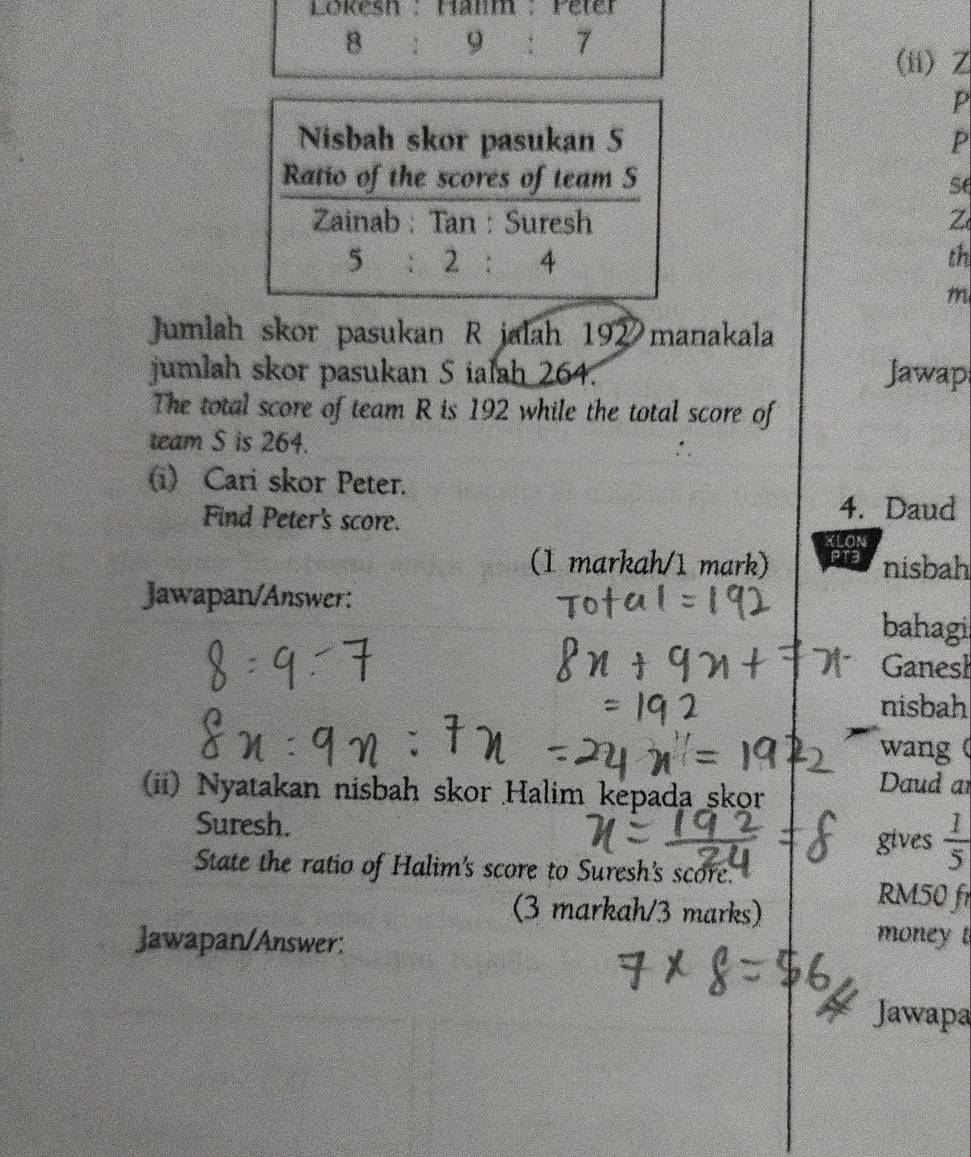 Lokesh : Halim : Peter
8 : 9 : 7
Nisbah skor pasukan S
Ratio of the scores of team S
Zainab : Tan : Suresh
5 : 2 : 4
Jumlah skor pasukan R ialah 192 manakala
jumlah skor pasukan S ialah 264.
The total score of team R is 192 while the total score of
team S is 264.
(i) Cari skor Peter.
Find Peter's score.
(1 markah/1 mark)
Jawapan/Answer:
Total = 192
8 : 9 : 7
8x + 9x + 7x
= 192
8x : 9x : 7x
= 24x = 192
(ii) Nyatakan nisbah skor Halim kepada skor
Suresh.
x = 192/24 = 8
State the ratio of Halim's score to Suresh's score.
(3 markah/3 marks)
Jawapan/Answer:
7 × 8 = 56
(ii) Z
P
P
se
Za
th
m
Jawap
4. Daud
KLON
PT3
nisbah
bahagi
Ganesh
nisbah
wang (
Daud a
gives 1/5
RM50 fr
money t
Jawapa